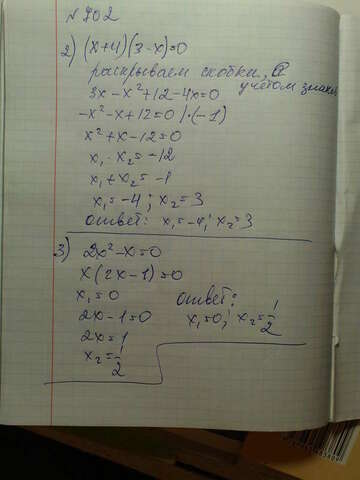 № 702
2) (x+4)(3-x)=0
раскрываем скобки, с
учётом знаков
3x-x²+12-4x=0
-x²-x+12=0 |·(-1)
x²+x-12=0
x₁·x₂=-12
x₁+x₂=-1
x₁=-4; x₂=3
ответ: x₁=-4; x₂=3
3) 2x²-x=0
x(2x-1)=0
x₁=0
2x-1=0
2x=1
x₂=1/2
ответ:
x₁=0; x₂=1/2